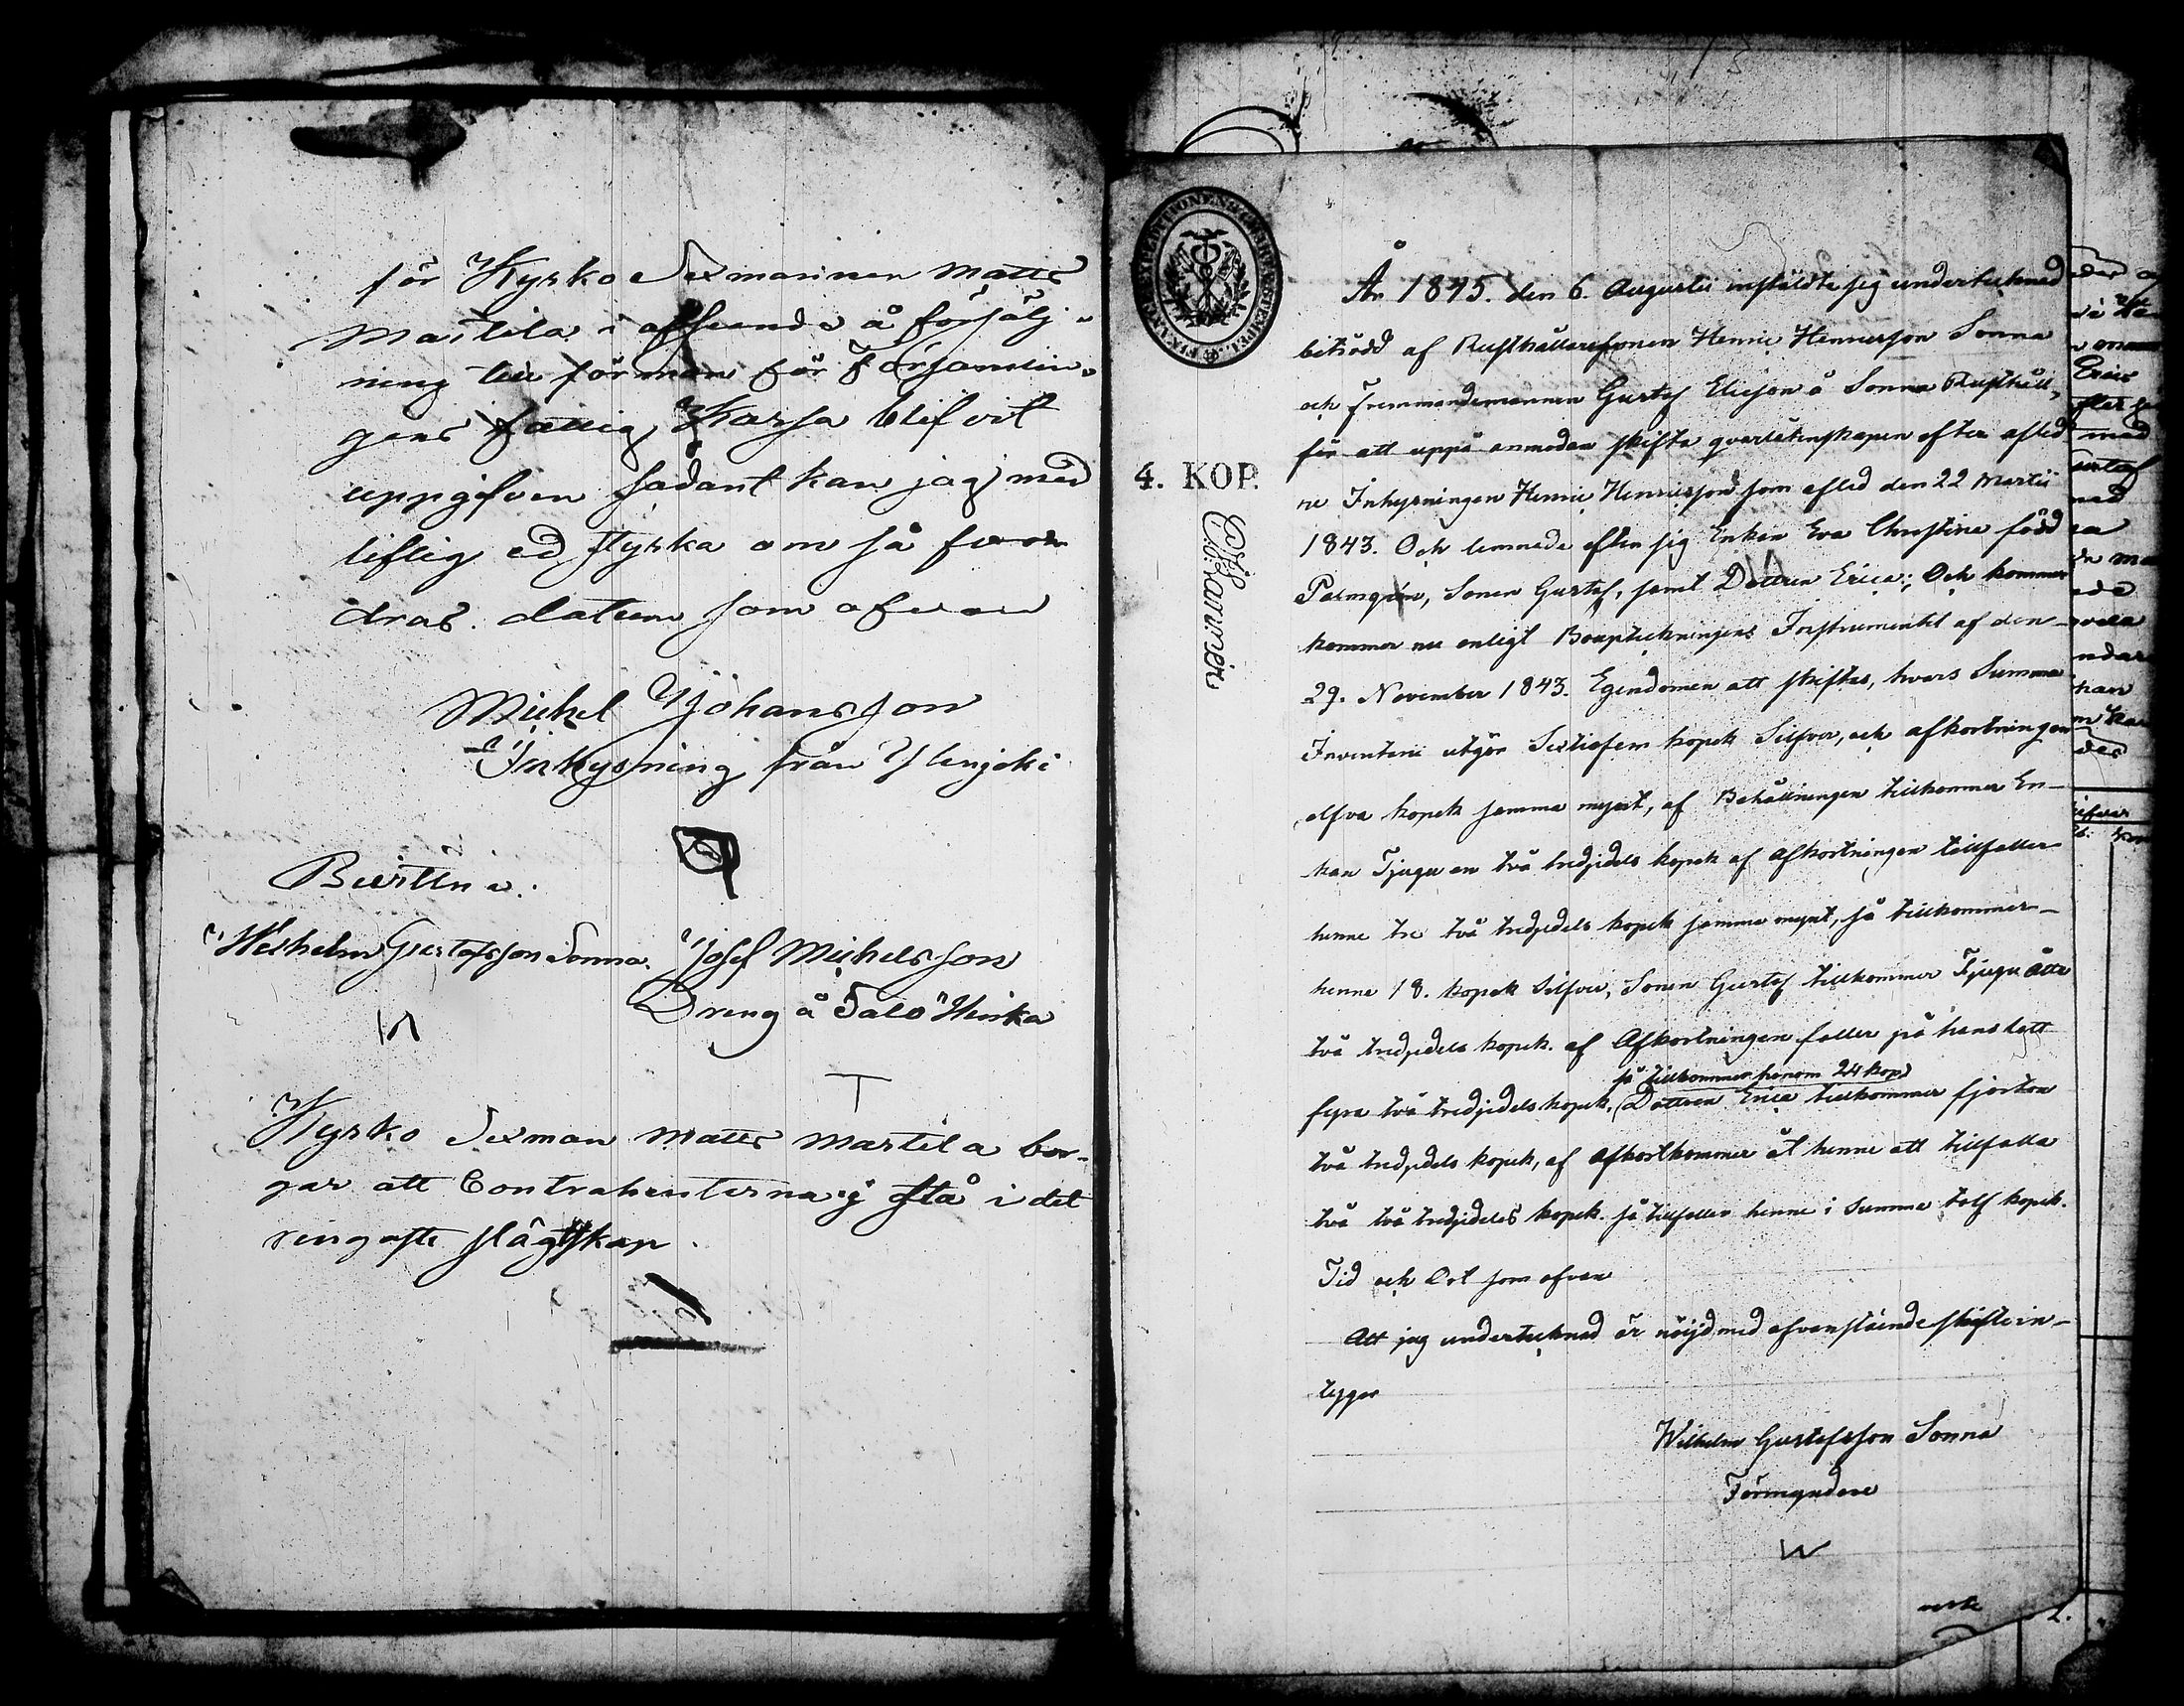 för Kyrko Sexmannen Matts
Martila i afseende å försälj-
ning till förmån för Församlin-
gens fattig Kassa blifvit
uppgifven sådant kan jag med
liflig ed styrka om så for-
dras. datum som ofvan
Michel Johansson
Inhysning från Ylenjoki
Bevittna:
Wilhelm Gustafsson Sonna. Josef Michelsson
Dreng å Talo Heska
Kyrko Sexman Matts Martila bor-
gar att Contrahenterna ej stå i det
ringaste slägtskap.
4. KOP.
År 1845. den 6. Augusti instäldte sig undertecknad
biträdd af Rusthållaresonen Henric Henricsson Sonna
och fremmandemannen Gustaf Ericsson å Sonna Rusthåll,
för att uppå anmodan skifta qvarlåtenskapen efter aflid
ne Inhysningen Henric Henricsson som afled den 22 Martii
1843. Och lemnade efter sig Enkan Eva Christina född
Palmqvin, Sonen Gustaf, samt Dottren Erica; Och kommer
kommer nu enligt Bouptekningens Instrumentet af den
29. November 1843. Egendomen att skiftas, hvars Summa
Inventarii utgör Sextiofem kopek Silfver, och afkortningen
elfva kopek samma mynt, af Behållningen tillkommer En-
kan Tjugu en två tredjedels kopek af afkortningen tillfaller
henne tre två tredjedels kopek samma mynt, så tillkommer
henne 18. kopek Silfver, Sonen Gustaf tillkommer Tjugu Åtta
två tredjedels kopek. af Afkortningen faller på hans lott
så tillkommer honom 24 kop)
fyra två tredjedels kopek, (Dottren Erica tillkommer fjorton
två tredjedels kopek, af afkortkommer åt henne att tillfalla
två två tredjedels kopek så tillfaller henne i summa tolf kopek.
Tid och Ort som ofvan
Att jag undertecknad är nöijd med ofvanstående skifte in-
tygar
Wilhelm Gustafsson Sonna
Förmyndare